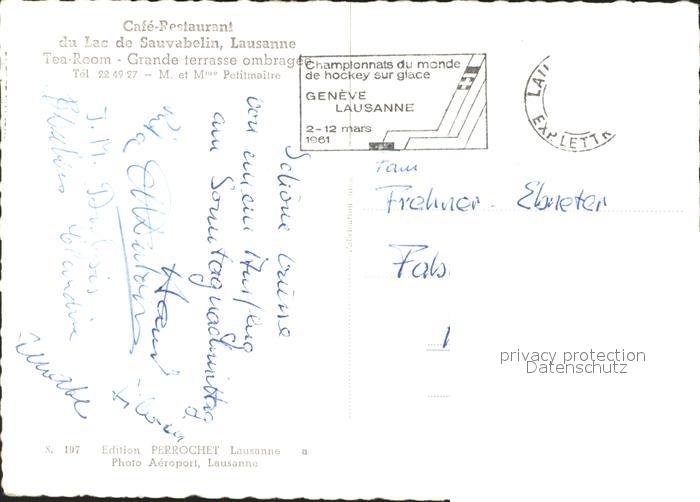 Café-Restaurant
du Lac de Sauvabelin, Lausanne
Tea-Room - Grande terrasse ombragée
Tél 22 49 27 — M. et Mme Petitmaître
Championnats du monde
de hockey sur glace
GENÈVE
LAUSANNE
2-12 mars
1961
LAU
EXP. LETTR
Schöne Grüsse
von einem Ausflug
am Sonntagnachmittag
Fam
Frehner - Ebneter
Fab
privacy protection
Datenschutz
S. 197 Edition PERROCHET Lausanne a
Photo Aéroport, Lausanne